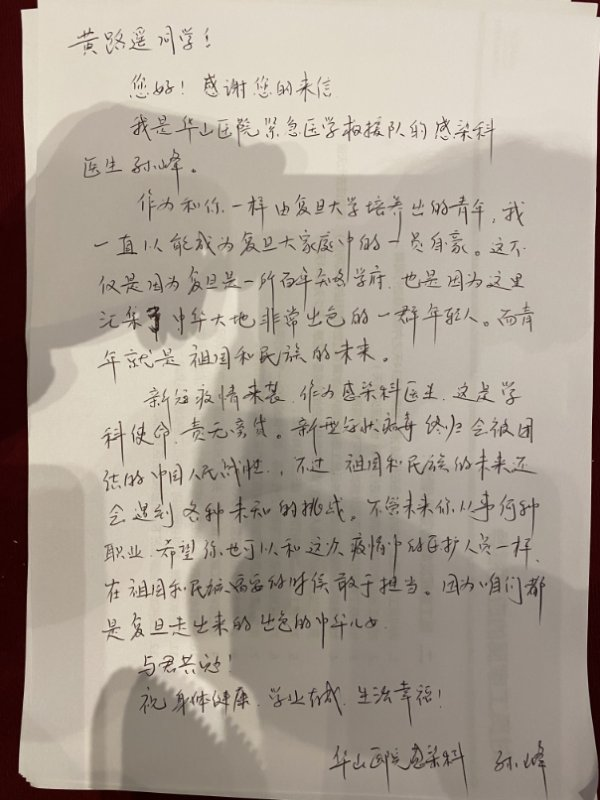 黄路遥同学：
您好！感谢您的来信
我是华山医院紧急医学救援队的感染科
医生孙峰。
作为和你一样由复旦大学培养出的青年，我
一直以能成为复旦大家庭中的一员自豪。这不
仅是因为复旦是一所百年知名学府，也是因为这里
汇集了中华大地非常出色的一群年轻人。而青
年就是祖国和民族的未来。
新冠疫情来袭，作为感染科医生，这是学
科使命，责无旁贷。新型冠状病毒终归会被团
结的中国人民战胜，不过祖国和民族的未来还
会遇到各种未知的挑战。不管未来你从事何种
职业，希望你也可以和这次疫情中的医护人员一样，
在祖国和民族需要的时候敢于担当。因为咱们都
是复旦走出来的出色的中华儿女。
与君共勉！
祝身体健康，学业有成，生活幸福！
华山医院感染科 孙峰